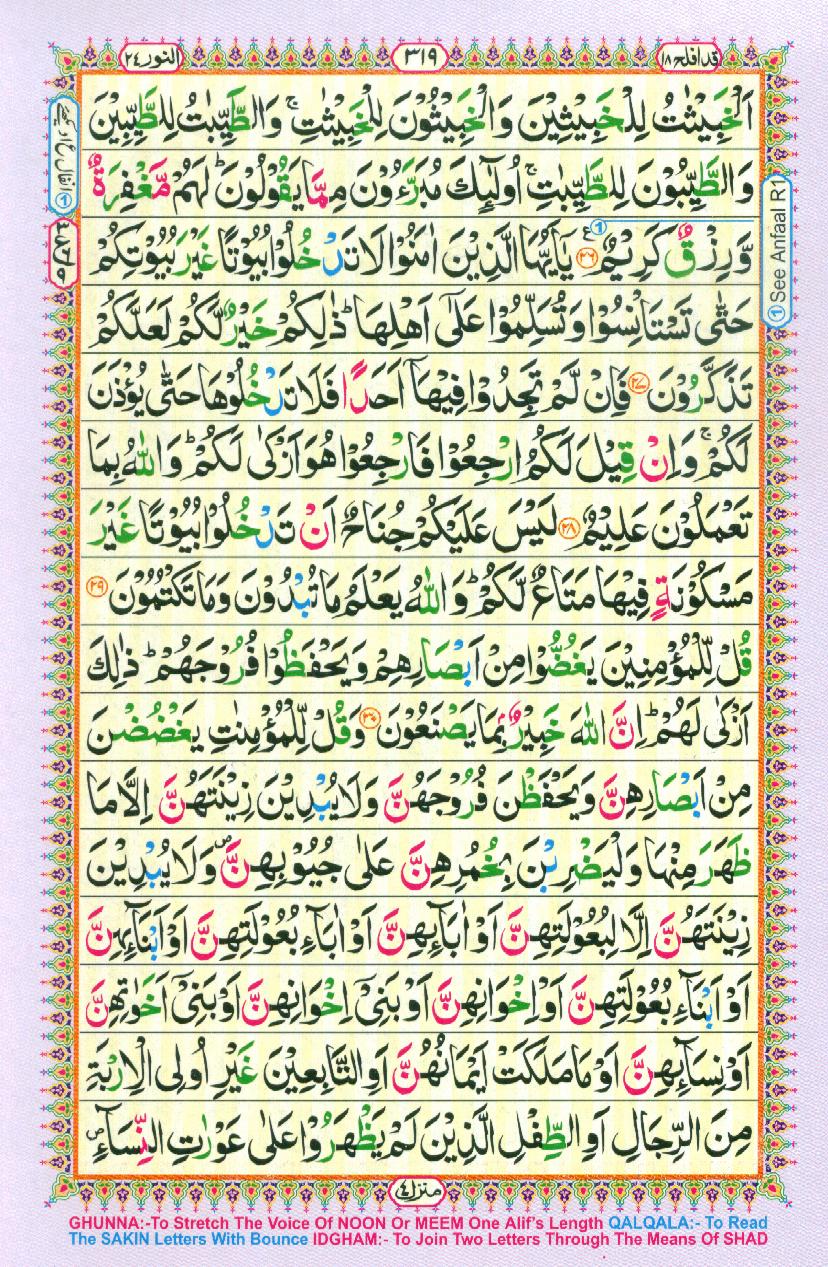 قد افلح ١٨
٣١٩
النور ٢٤
اَلْخَبِيْثٰتُ لِلْخَبِيْثِيْنَ وَالْخَبِيْثُوْنَ لِلْخَبِيْثٰتِ ۚ وَالطَّيِّبٰتُ لِلطَّيِّبِيْنَ
وَالطَّيِّبُوْنَ لِلطَّيِّبٰتِ ۚ اُولٰٓئِكَ مُبَرَّءُوْنَ مِمَّا يَقُوْلُوْنَ ؕ لَهُمْ مَّغْفِرَةٌ
وَّرِزْقٌ كَرِيْمٌ ﴿۲۶﴾ ع ① يٰۤاَيُّهَا الَّذِيْنَ اٰمَنُوْا لَا تَدْخُلُوْا بُيُوْتًا غَيْرَ بُيُوْتِكُمْ
حَتّٰى تَسْتَاْنِسُوْا وَتُسَلِّمُوْا عَلٰٓى اَهْلِهَا ؕ ذٰلِكُمْ خَيْرٌ لَّكُمْ لَعَلَّكُمْ
تَذَكَّرُوْنَ ﴿۲۷﴾ فَاِنْ لَّمْ تَجِدُوْا فِيْهَاۤ اَحَدًا فَلَا تَدْخُلُوْهَا حَتّٰى يُؤْذَنَ
لَكُمْ ۚ وَاِنْ قِيْلَ لَكُمُ ارْجِعُوْا فَارْجِعُوْا هُوَ اَزْكٰى لَكُمْ ؕ وَاللّٰهُ بِمَا
تَعْمَلُوْنَ عَلِيْمٌ ﴿۲۸﴾ لَيْسَ عَلَيْكُمْ جُنَاحٌ اَنْ تَدْخُلُوْا بُيُوْتًا غَيْرَ
مَسْكُوْنَةٍ فِيْهَا مَتَاعٌ لَّكُمْ ؕ وَاللّٰهُ يَعْلَمُ مَا تُبْدُوْنَ وَمَا تَكْتُمُوْنَ ﴿۲۹﴾
قُلْ لِّلْمُؤْمِنِيْنَ يَغُضُّوْا مِنْ اَبْصَارِهِمْ وَيَحْفَظُوْا فُرُوْجَهُمْ ؕ ذٰلِكَ
اَزْكٰى لَهُمْ ؕ اِنَّ اللّٰهَ خَبِيْرٌۢ بِمَا يَصْنَعُوْنَ ﴿۳۰﴾ وَقُلْ لِّلْمُؤْمِنٰتِ يَغْضُضْنَ
مِنْ اَبْصَارِهِنَّ وَيَحْفَظْنَ فُرُوْجَهُنَّ وَلَا يُبْدِيْنَ زِيْنَتَهُنَّ اِلَّا مَا
ظَهَرَ مِنْهَا وَلْيَضْرِبْنَ بِخُمُرِهِنَّ عَلٰى جُيُوْبِهِنَّ ۪ وَلَا يُبْدِيْنَ
زِيْنَتَهُنَّ اِلَّا لِبُعُوْلَتِهِنَّ اَوْ اٰبَآئِهِنَّ اَوْ اٰبَآءِ بُعُوْلَتِهِنَّ اَوْ اَبْنَآئِهِنَّ
اَوْ اَبْنَآءِ بُعُوْلَتِهِنَّ اَوْ اِخْوَانِهِنَّ اَوْ بَنِيْۤ اِخْوَانِهِنَّ اَوْ بَنِيْۤ اَخَوٰتِهِنَّ
اَوْ نِسَآئِهِنَّ اَوْ مَا مَلَكَتْ اَيْمَانُهُنَّ اَوِ التّٰبِعِيْنَ غَيْرِ اُولِى الْاِرْبَةِ
مِنَ الرِّجَالِ اَوِ الطِّفْلِ الَّذِيْنَ لَمْ يَظْهَرُوْا عَلٰى عَوْرٰتِ النِّسَآءِ ۪
منزل ٤
① See Anfaal R1
GHUNNA:-To Stretch The Voice Of NOON Or MEEM One Alif's Length QALQALA:- To Read
The SAKIN Letters With Bounce IDGHAM:- To Join Two Letters Through The Means Of SHAD